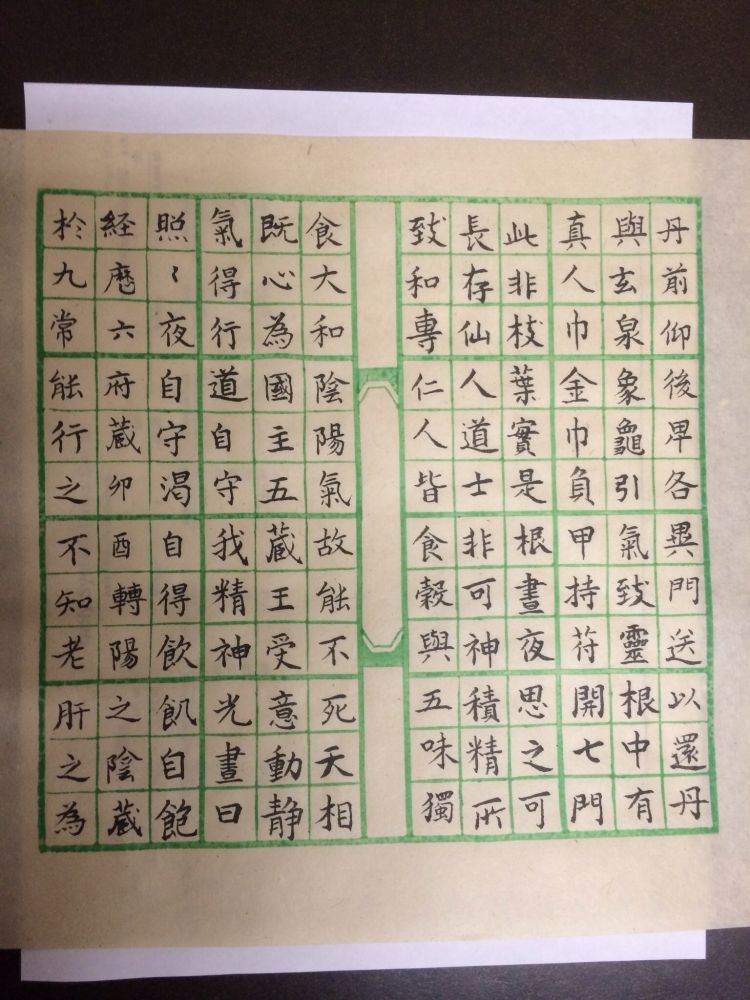 丹前仰後卑各異門送以還丹
與玄泉象龜引氣致靈根中有
真人巾金巾負甲持符開七門
此非枝葉實是根晝夜思之可
長存仙人道士非可神積精所
致和專仁人皆食穀與五味獨
食大和陰陽氣故能不死天相
既心為國主五蔵王受意動静
氣得行道自守我精神光晝日
照〻夜自守渇自得飲飢自飽
経歴六府蔵卯酉轉陽之陰蔵
於九常能行之不知老肝之為